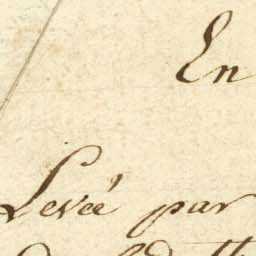 En
Levée par